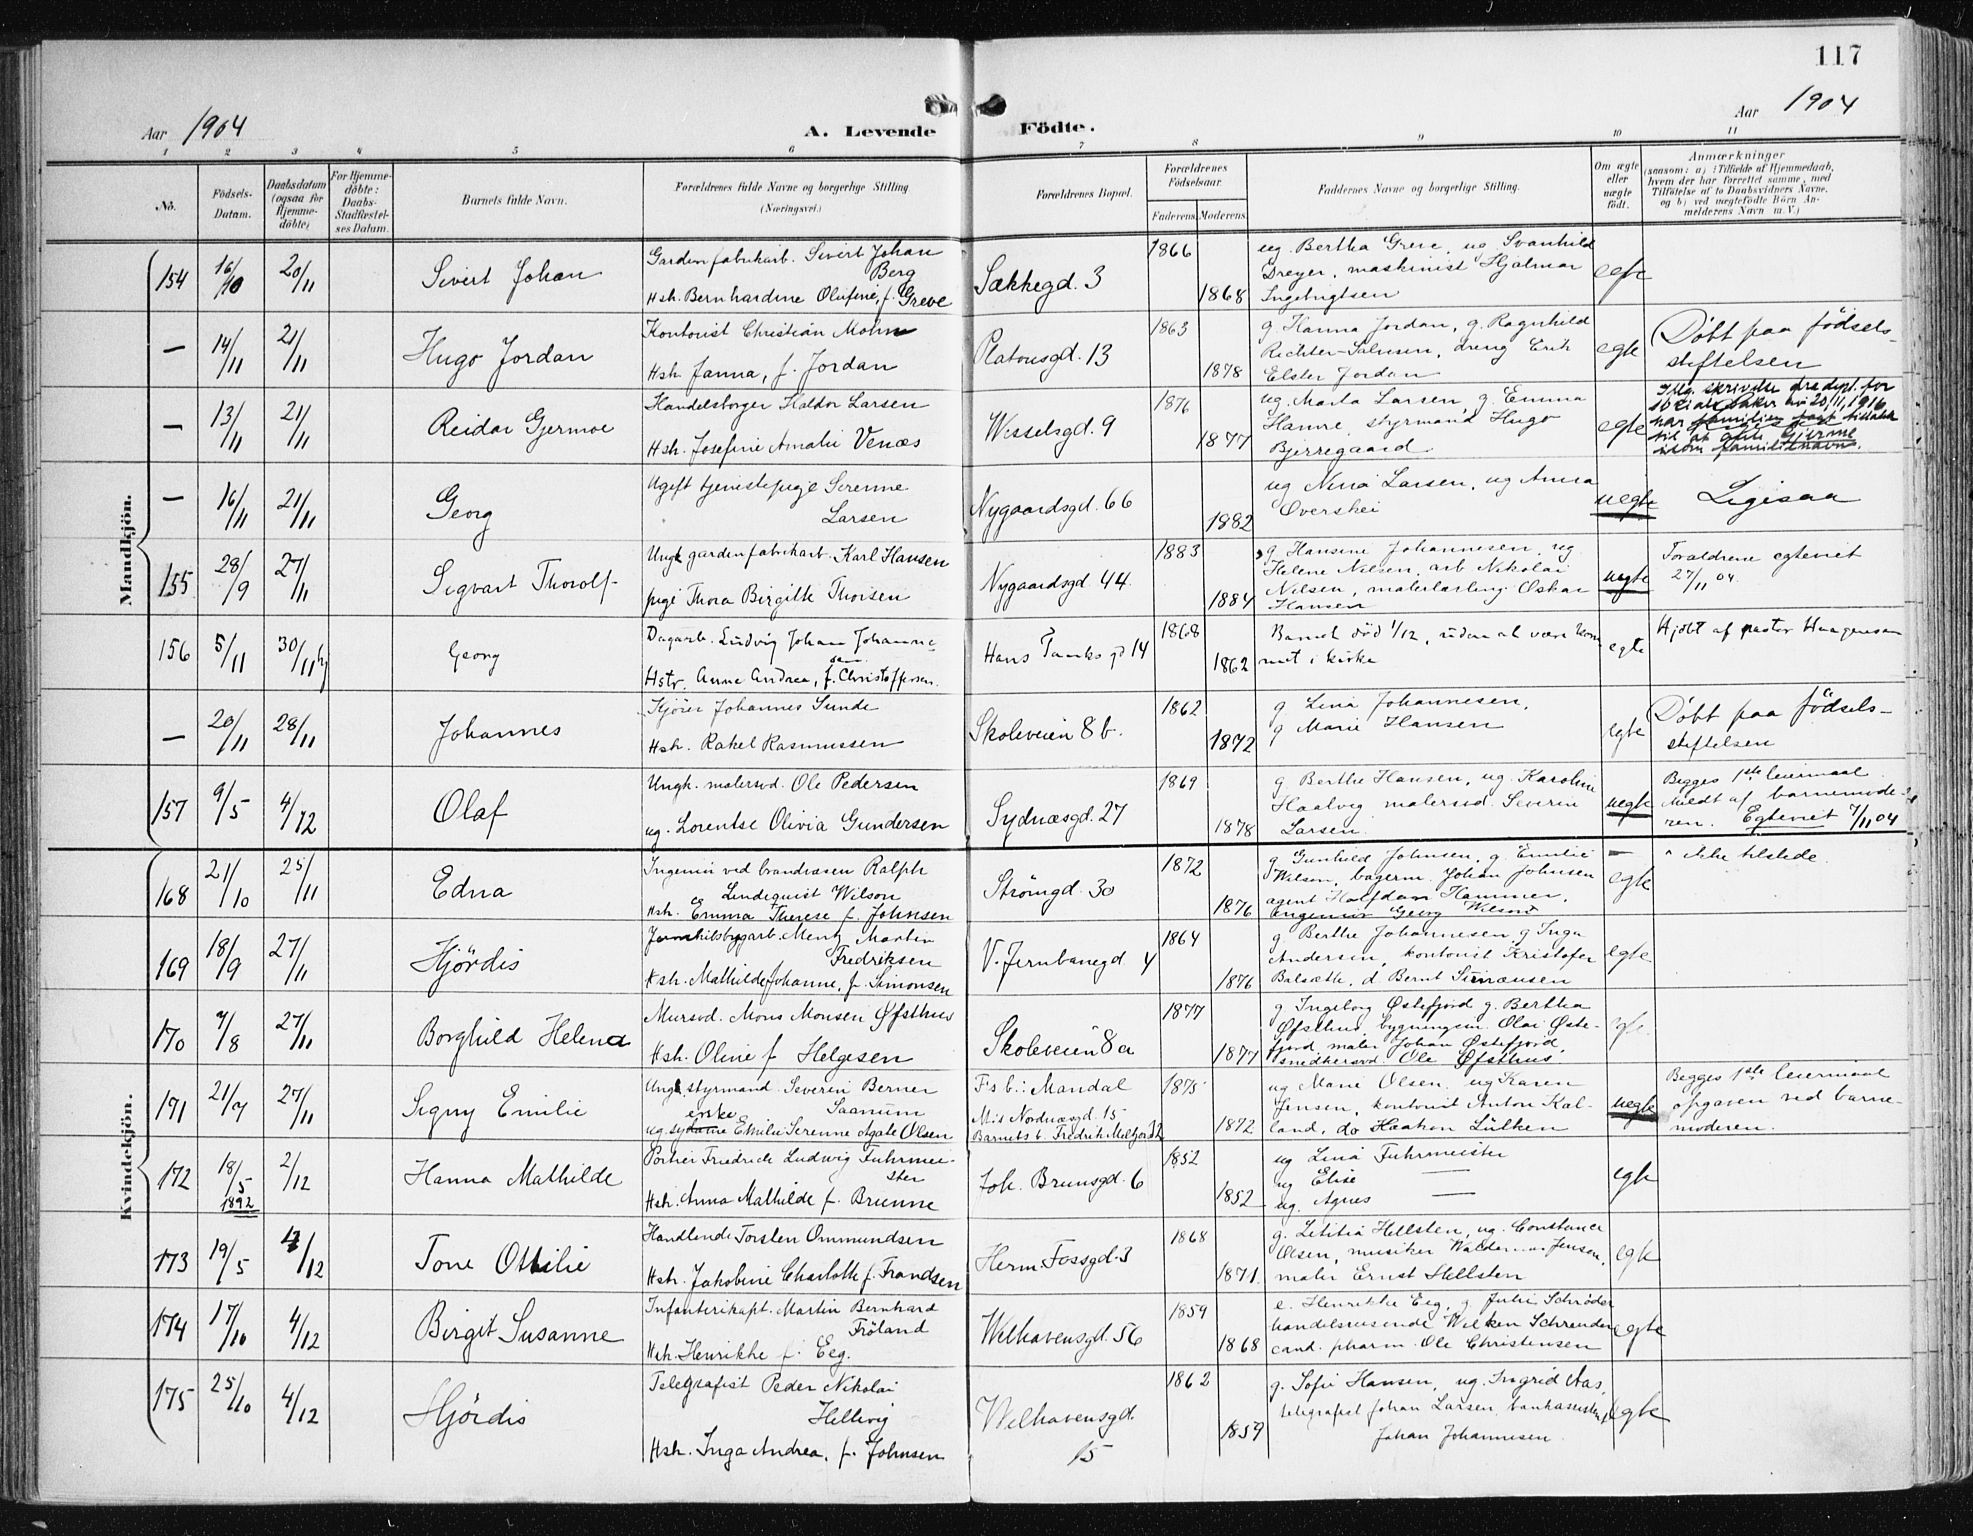 117
Aar 1904
A. Levende Födte.
Aar 1904
1 2 3 4 5 6 7 8 9 10 11
No.
Födsels-
Datum.
Daabsdatum
(ogsaa for
Hjemme-
döbte)
For Hjemme-
döbte:
Daabs-
Stadfæstel-
ses Datum.
Barnets fulde Navn.
Forældrenes fulde Navne og borgerlige Stilling
(Næringsvei.)
Forældrenes Bopæl.
Forældrenes
Födselsaar.
Faderens. Moderens.
Faddernes Navne og borgerlige Stilling.
Om ægte
eller
uægte
födt.
Anmærkninger
(saasom: a) i Tilfælde af Hjemmedaab,
hvem der har forrettet samme, med
Tilföielse af to Daabsvidners Navne,
og b) ved uægtefödte Börn An-
melderens Navn m. V.)
Mandkjön.
154 16/10 20/11 Sivert Johan
Gardinfabrikarb. Sivert Johan
Berg
Hsh. Bernhardine Olufine, f. Greve
Sækkegd. 3
1866
1868
ug. Bertha Greve, ug Svanhild
Dreyer, maskinist Hjalmar
Ingebrigtsen
egte
— 14/11 21/11 Hugo Jordan
Kontorist Christian Mohn
Hsh. Janna, f. Jordan
Platousgd. 13
1863
1878
g. Hanna Jordan, g. Ragnhild
Richter-Salvesen, dreng Erik
Elster Jordan
egte
Döbt paa födsels-
stiftelsen
— 13/11 21/11 Reidar Gjermoe
Handelsborger Haldor Larsen
Hsh. Josefine Amalie Venæs
Wesselsgd. 9
1876
1877
ug. Marta Larsen, g. Emma
Hamre, styrmand Hugo
Bjerregaard
egte
Iflg. skrivelse fra dept. for
sociale saker av 20/11, 1916
har familien faat tilladelse
til at anta Gjerme
som familienavn.
— 16/11 21/11 Georg
Ugift tjenestepige Serenne
Larsen
Nygaardsgd. 66
1882
ug Nina Larsen, ug Anna
Overskei
uegte
Ligesaa
155 28/9 27/11 Sigvart Thorolf
Ungk gardinfabrikarb. Karl Hansen
pige Thora Birgitte Thorsen
Nygaardsgd 44
1883
1884
g. Hansine Johannesen, ug
Helene Nilsen, arb Nikolai
Nilsen, malerlærling Oskar
Hansen
uegte
Forældrene egteviet
27/11 04.
156 5/11 30/11 hj Georg
Dagarb. Ludvig Johan Johanne-
sen
Hstr. Anne Andrea, f. Christoffersen.
Hans Tanks gd 14
1868
1862
Barnet död 1/12, uden at være kom-
met i kirke
egte
Hjdbt af pastor Haagensen
— 20/11 28/11 Johannes
Kjörer Johannes Sunde
Hsh. Rakel Rasmussen
Skoleveien 8 b.
1862
1872
g Lina Johannesen,
g Marie Hansen
egte
Döbt paa födsels-
stiftelsen
157 9/5 4/12 Olaf
Ungk. malersvd. Ole Pedersen
ug. Lorentse Olivia Gundersen
Sydnæsgd. 27
1869
1878
g Berthe Hansen, ug. Karoline
Haalvig malersvd. Severin
Larsen.
uegte
Begges 1ste leiermaal
meldt af barnemode-
ren. Egteviet 7/11 04
Kvindekjön.
168 21/10 25/11 Edna
Ingeniör ved brandvæsen Ralph
Lindequist Wilson
Hsh. Emma Therese f. Johnsen
Strömgd. 30
1872
1876
g Gunhild Johnsen, g. Emilie
Wilson, bagerm. Johan Johnsen
agent Halfdan Hammer,
Ingeniör Georg Wilson
— egte
ikke tilstede.
169 18/9 27/11 Hjördis
Mentz Martin
Fredriksen
Hsh. Mathilde Johanne, f. Simonsen
V. Jernbanegd 4
1864
1876
g. Berthe Johannesen g Inga
Andersen, kontorist Kristofer
Balsæth, d Bernt Simensen
egte
170 7/8 27/11 Borghild Helene
Mursvd. Mons Monsen Øfsthus
Hsh. Oline f Helgesen
Skoleveien 8 a
1877
1877
g Ingeborg Østefjord g. Bertha
Øfsthus, bygningsm. Olai Øste-
fjord, maler Johan Østefjord,
snedkersvd. Ole Øfsthus
egte.
171 21/7 27/11 Signy Emilie
Ungk. styrmand Severin Berner
Saanum
enke
ug. sydame Emilie Serenne Agate Olsen
F's b.: Mandal
M's Nordnæsgd. 15
Barnets b. Fredrik Meltzersgd 32
1875
1872
ug Marie Olsen, ug Karen
Jensen, kontorist Anton Kal-
land, do Haakon Lütken
uegte
Begges 1ste leiermaal
opgaven ved barne-
moderen.
172 18/5 1892 2/12 Hanna Mathilde
Portier Friedrich Ludwig Fuhrmei-
ster
Hsh. Anna Mathilde f. Brunne
Joh. Brunsgd. 6
1852
1852
ug Lina Fuhrmeister
ug Elise —
ug. Agnes —
egte
173 19/5 4/12 Tone Ottilie
Handlende Torsten Ommundsen
Hsh. Jakobine Charlotte f. Frandsen
Herm. Fossgd. 3
1868
1871.
g. Letitia Hellsten, ug. Constance
Olsen, musiker Waldemar Jensen,
maler Ernst Hellsten
egte
174 17/10 4/12 Birgit Susanne
Infanterikapt. Martin Bernhard
Fröland
Hsh. Henrikke f. Eeg.
Welhavensgd. 56
1859
1868
e. Henrikke Eeg, g. Julie Schröder
handelsreisende Wilken Schreuder
cand. pharm. Ole Christensen
egte
175 25/10 4/12 Hjördis
Telegrafist Peder Nikolai
Hellevig
Hsh. Inga Andrea, f. Johnsen
Welhavensgd.
15
1862
1859
g. Sofie Hansen, ug. Ingrid Aas,
telegrafist Johan Larsen, bankassistent
Johan Johannesen.
egte